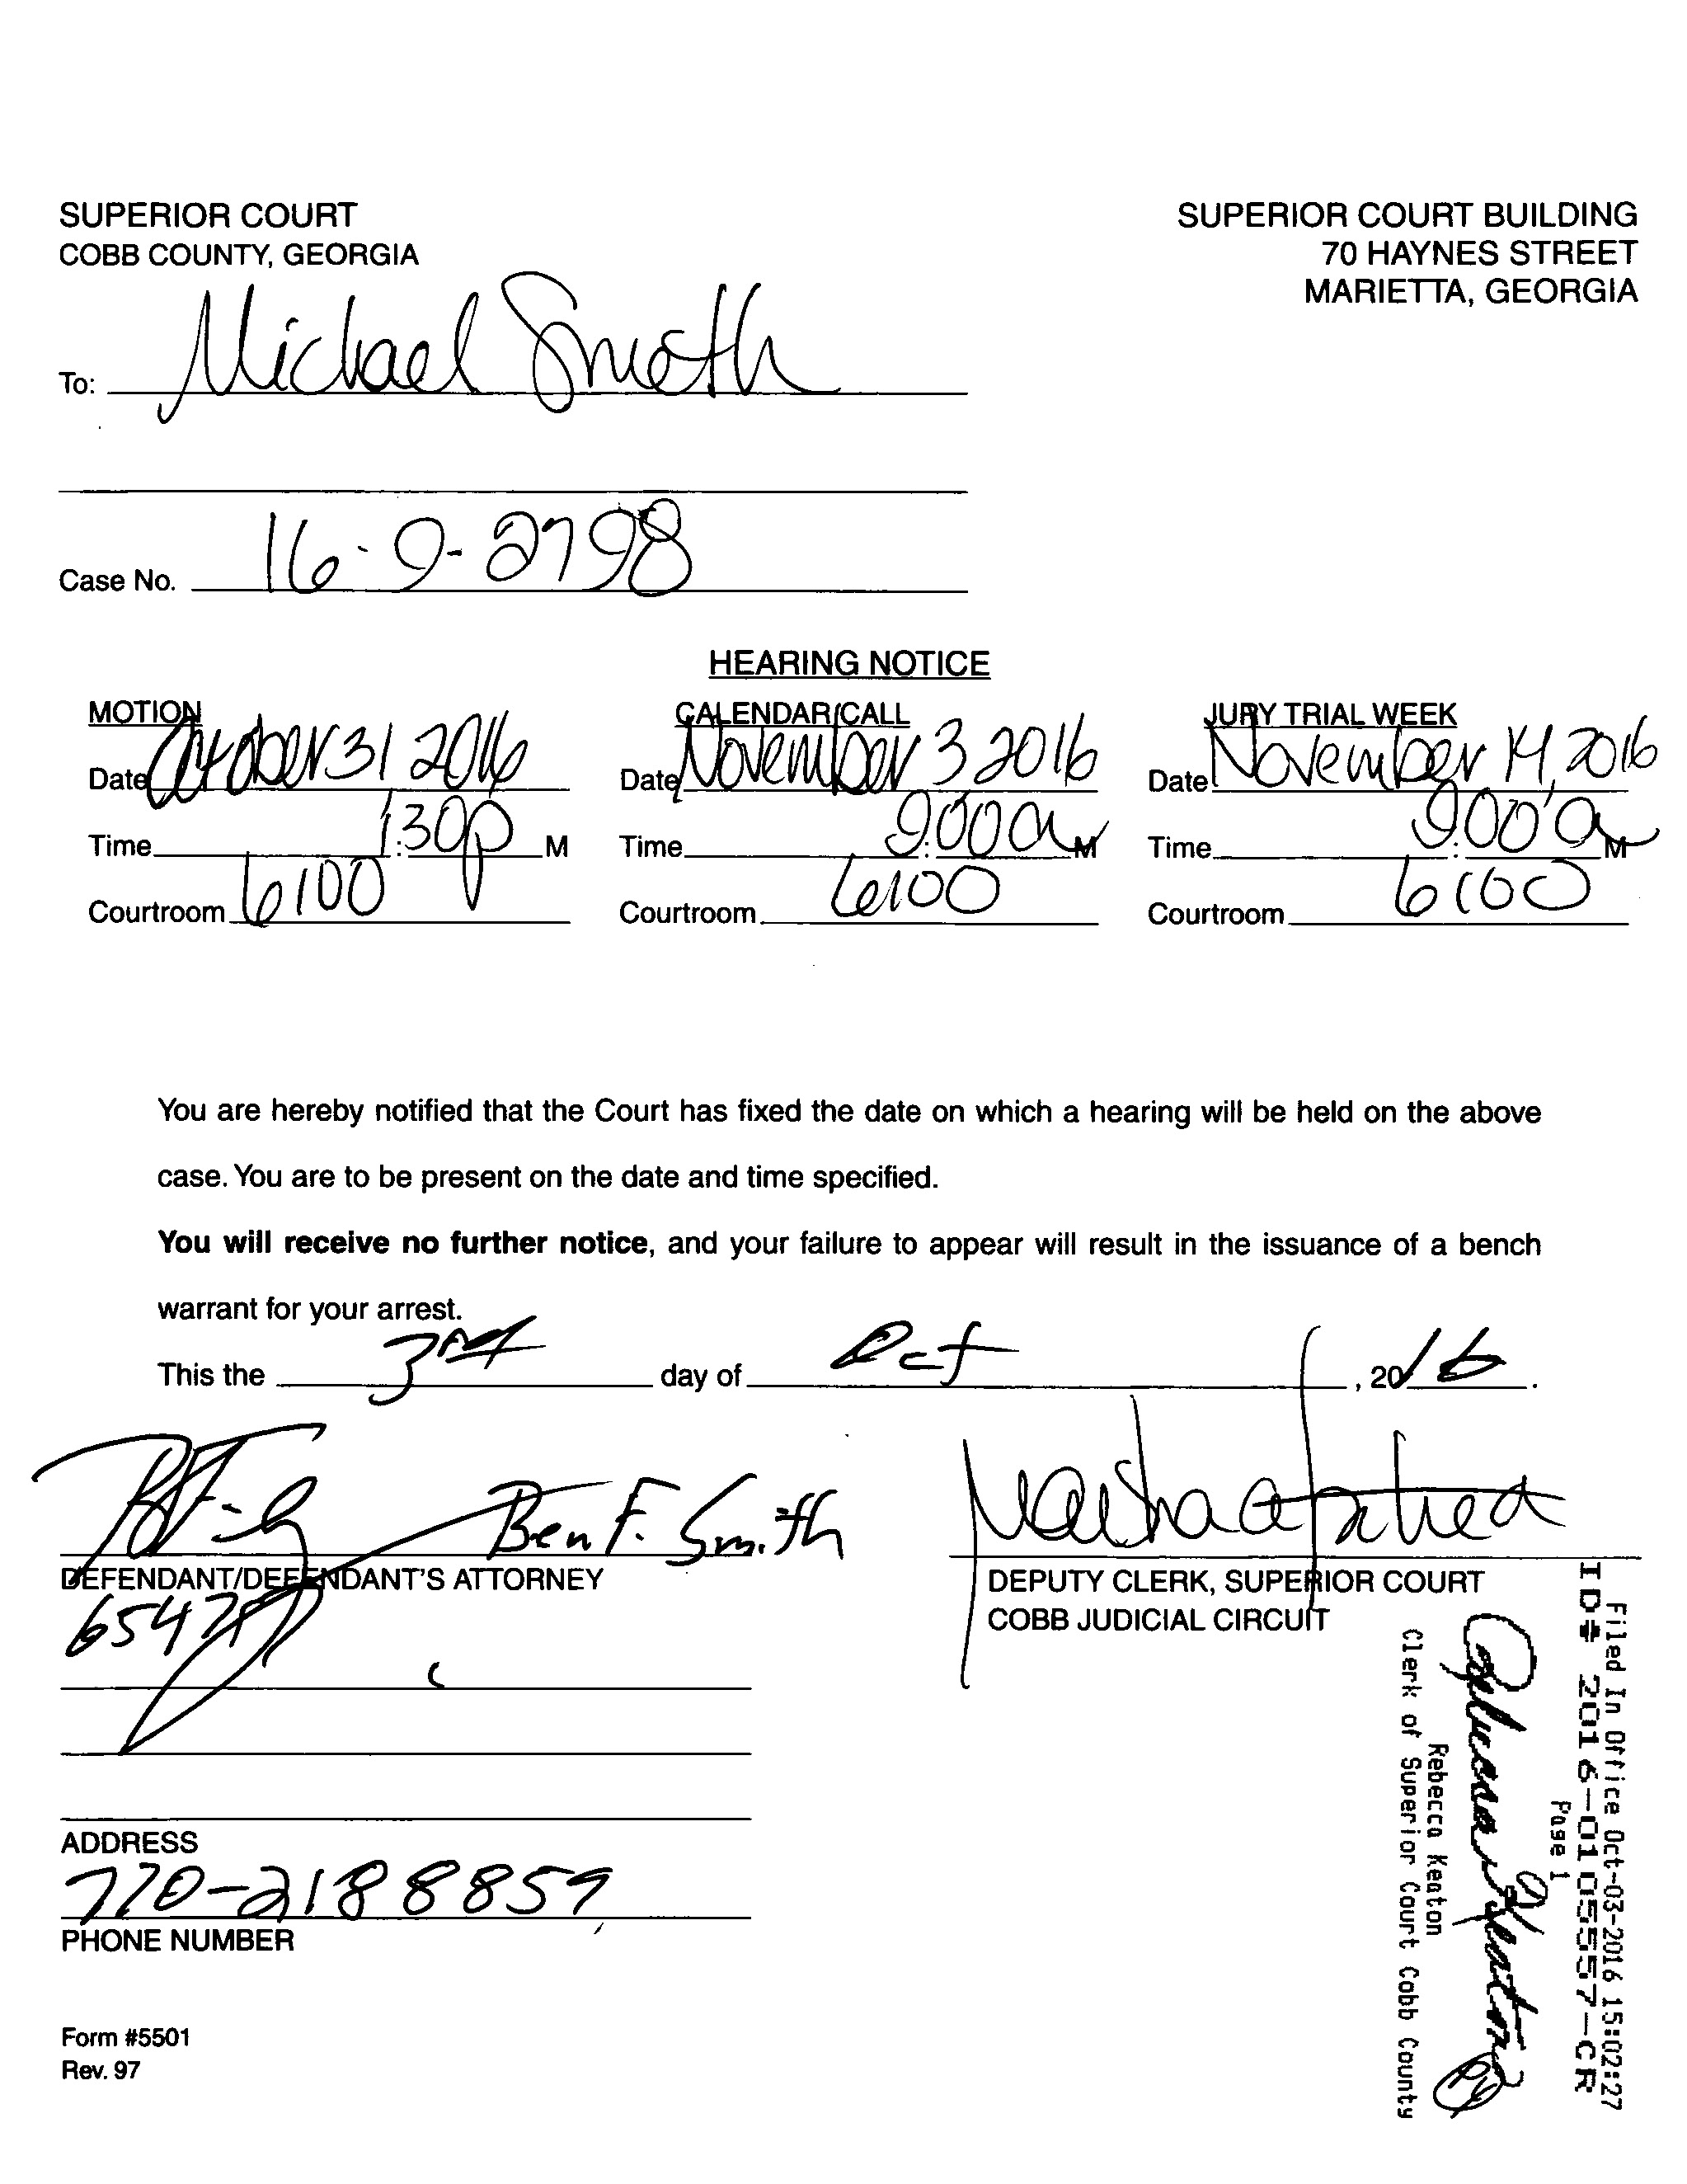 SUPERIOR COURT
COBB COUNTY, GEORGIA
SUPERIOR COURT BUILDING
70 HAYNES STREET
MARIETTA, GEORGIA
To: Michael Smith
Case No. 16-9-2798
HEARING NOTICE
MOTION
Date October 31 2016
Time 1:30p M
Courtroom 6100
CALENDAR CALL
Date November 3 2016
Time 9:00a M
Courtroom 6100
JURY TRIAL WEEK
Date November 14, 2016
Time 9:00 a M
Courtroom 6100
You are hereby notified that the Court has fixed the date on which a hearing will be held on the above
case. You are to be present on the date and time specified.
You will receive no further notice, and your failure to appear will result in the issuance of a bench
warrant for your arrest.
This the 3rd day of Oct, 2016.
Ben F. Smith
DEFENDANT/DEFENDANT'S ATTORNEY
DEPUTY CLERK, SUPERIOR COURT
COBB JUDICIAL CIRCUIT
ADDRESS
770-2188859
PHONE NUMBER
Form #5501
Rev. 97
Filed In Office Oct-03-2016 15:02:27
ID# 2016-0105557-CR
Page 1
Rebecca Keaton
Rebecca Keaton
Clerk of Superior Court Cobb County